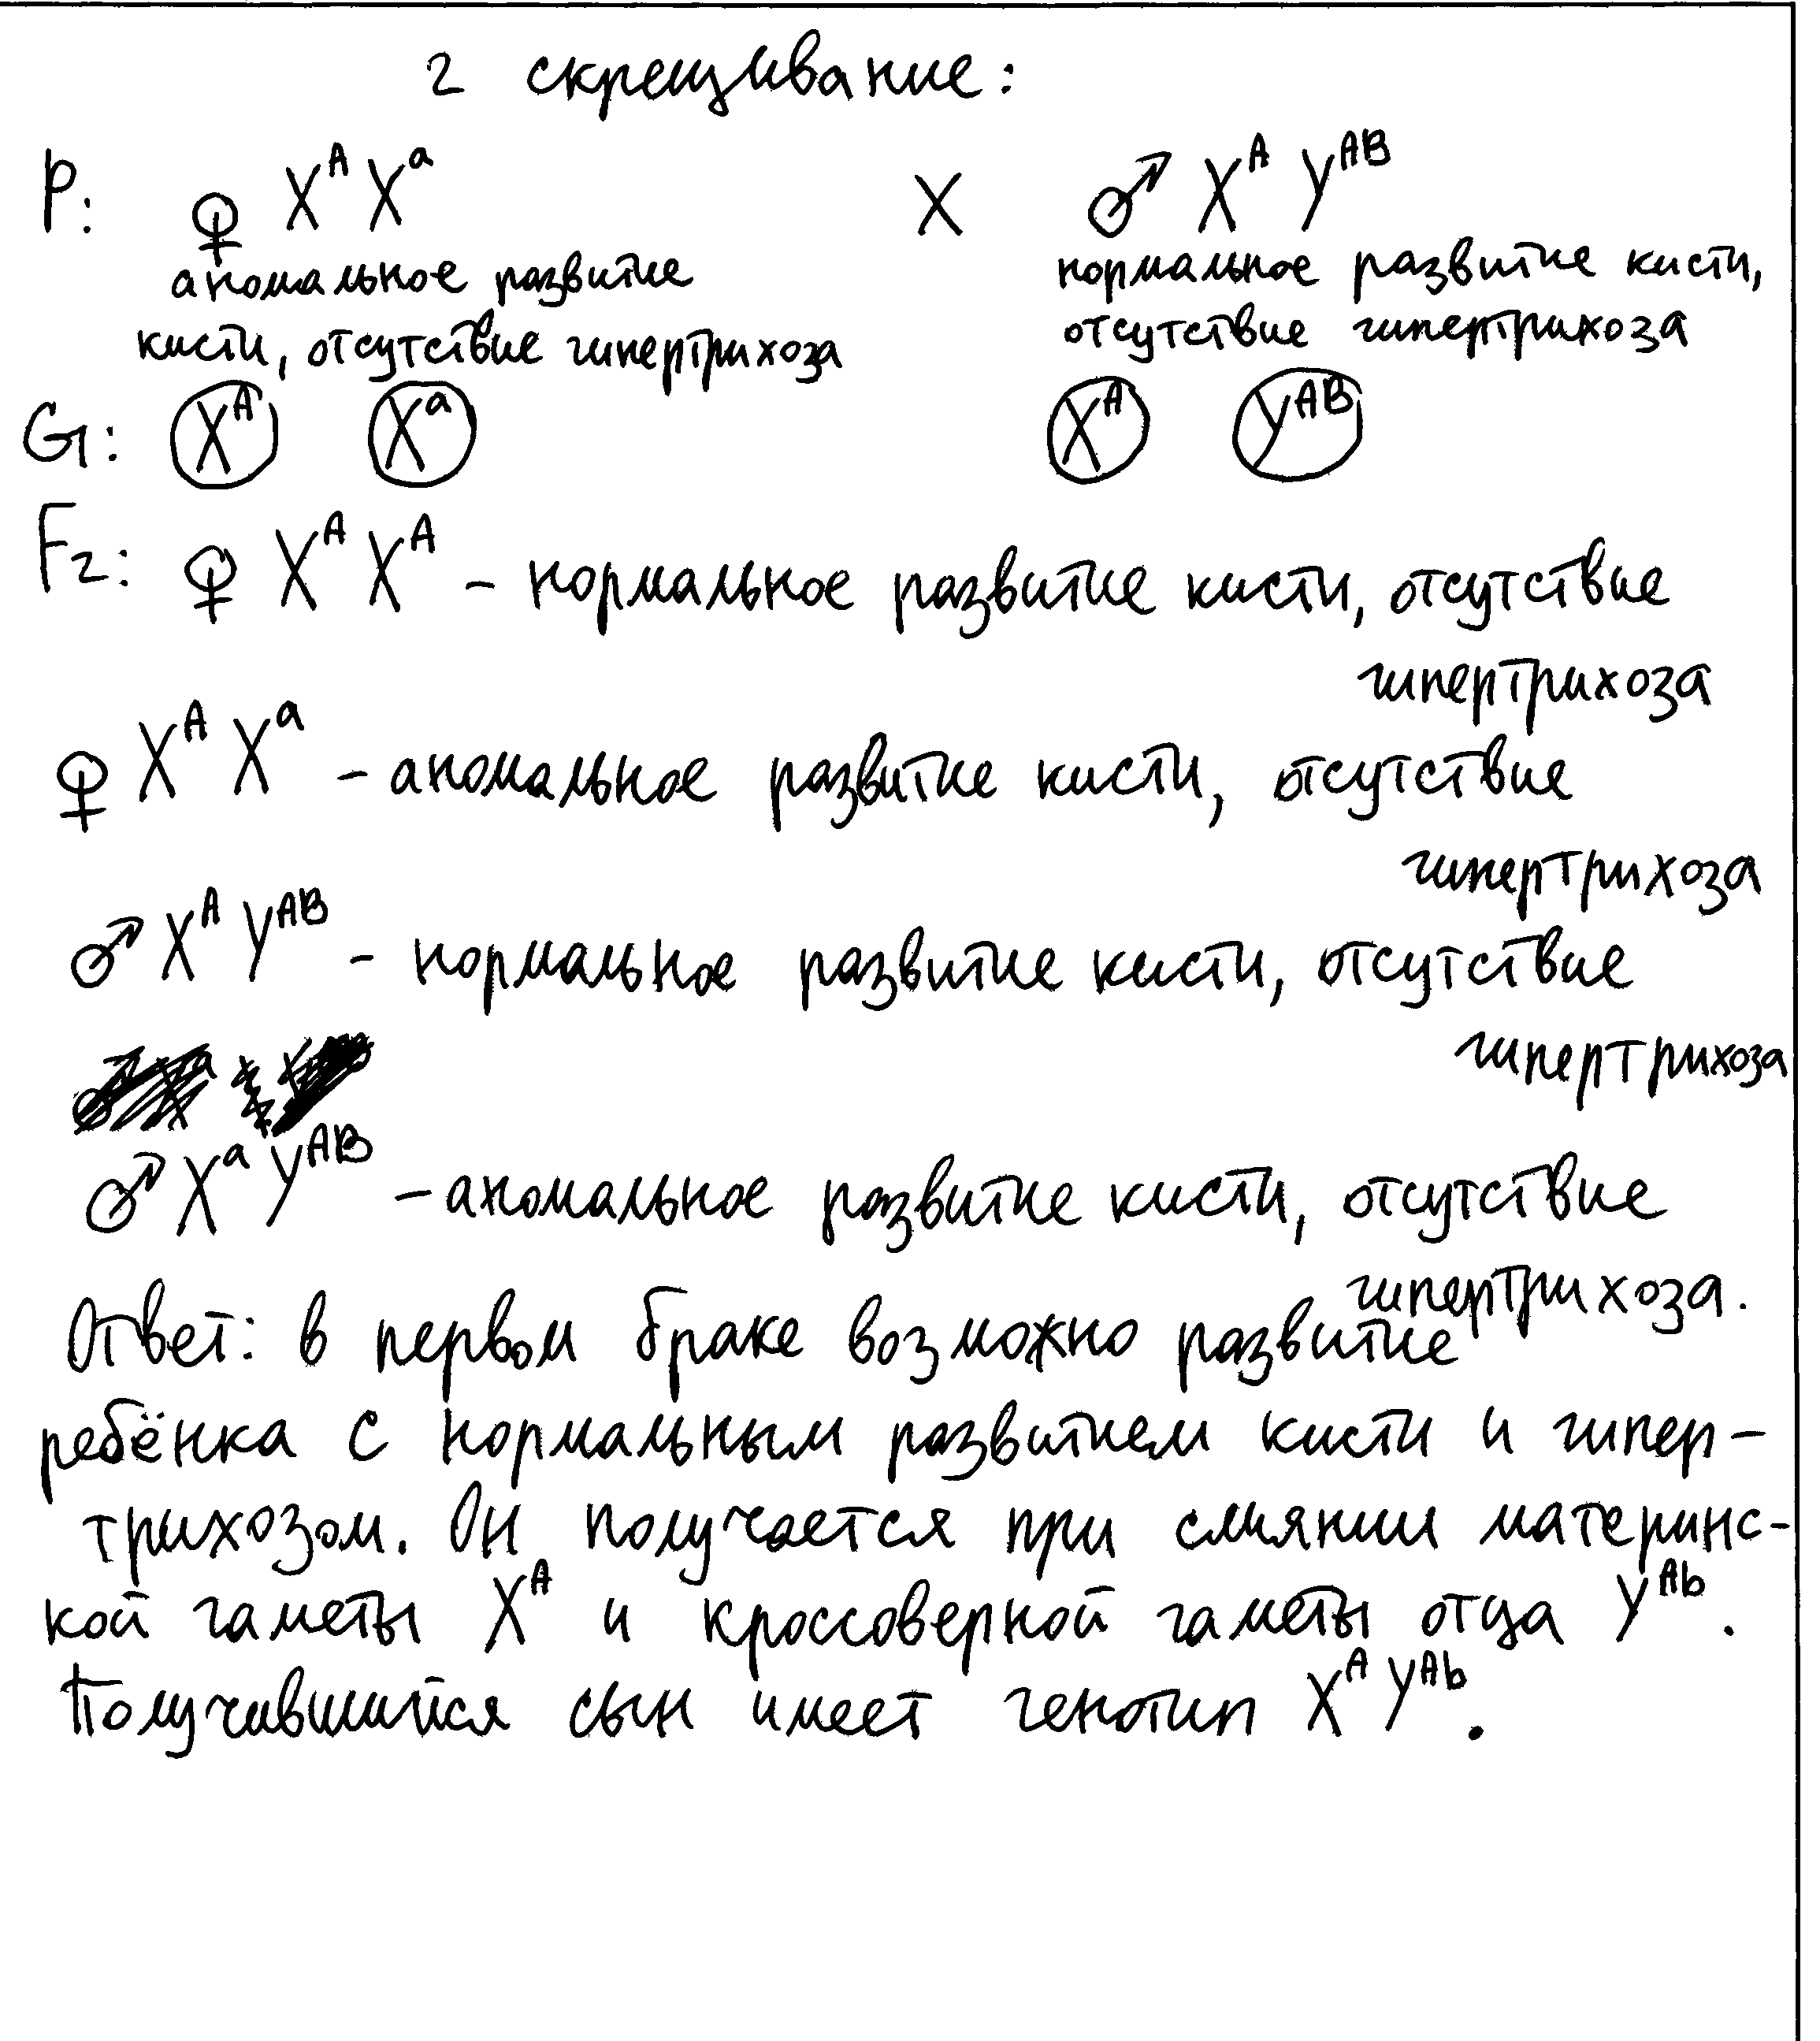 2 скрещивание:
P: ♀ X^A X^a × ♂ X^A Y^AB
аномальное развитие
кисти, отсутствие гипертрихоза
нормальное развитие кисти,
отсутствие гипертрихоза
G: X^A X^a X^A Y^AB
F2: ♀ X^A X^A – нормальное развитие кисти, отсутствие
гипертрихоза
♀ X^A X^a – аномальное развитие кисти, отсутствие
гипертрихоза
♂ X^A Y^AB – нормальное развитие кисти, отсутствие
гипертрихоза
♂ X^a Y^AB – аномальное развитие кисти, отсутствие
гипертрихоза.
Ответ: в первом браке возможно развитие
ребёнка с нормальным развитием кисти и гипер-
трихозом. Он получается при слиянии материнс-
кой гаметы X^A и кроссоверной гаметы отца Y^Ab.
Получившийся сын имеет генотип X^A Y^Ab.